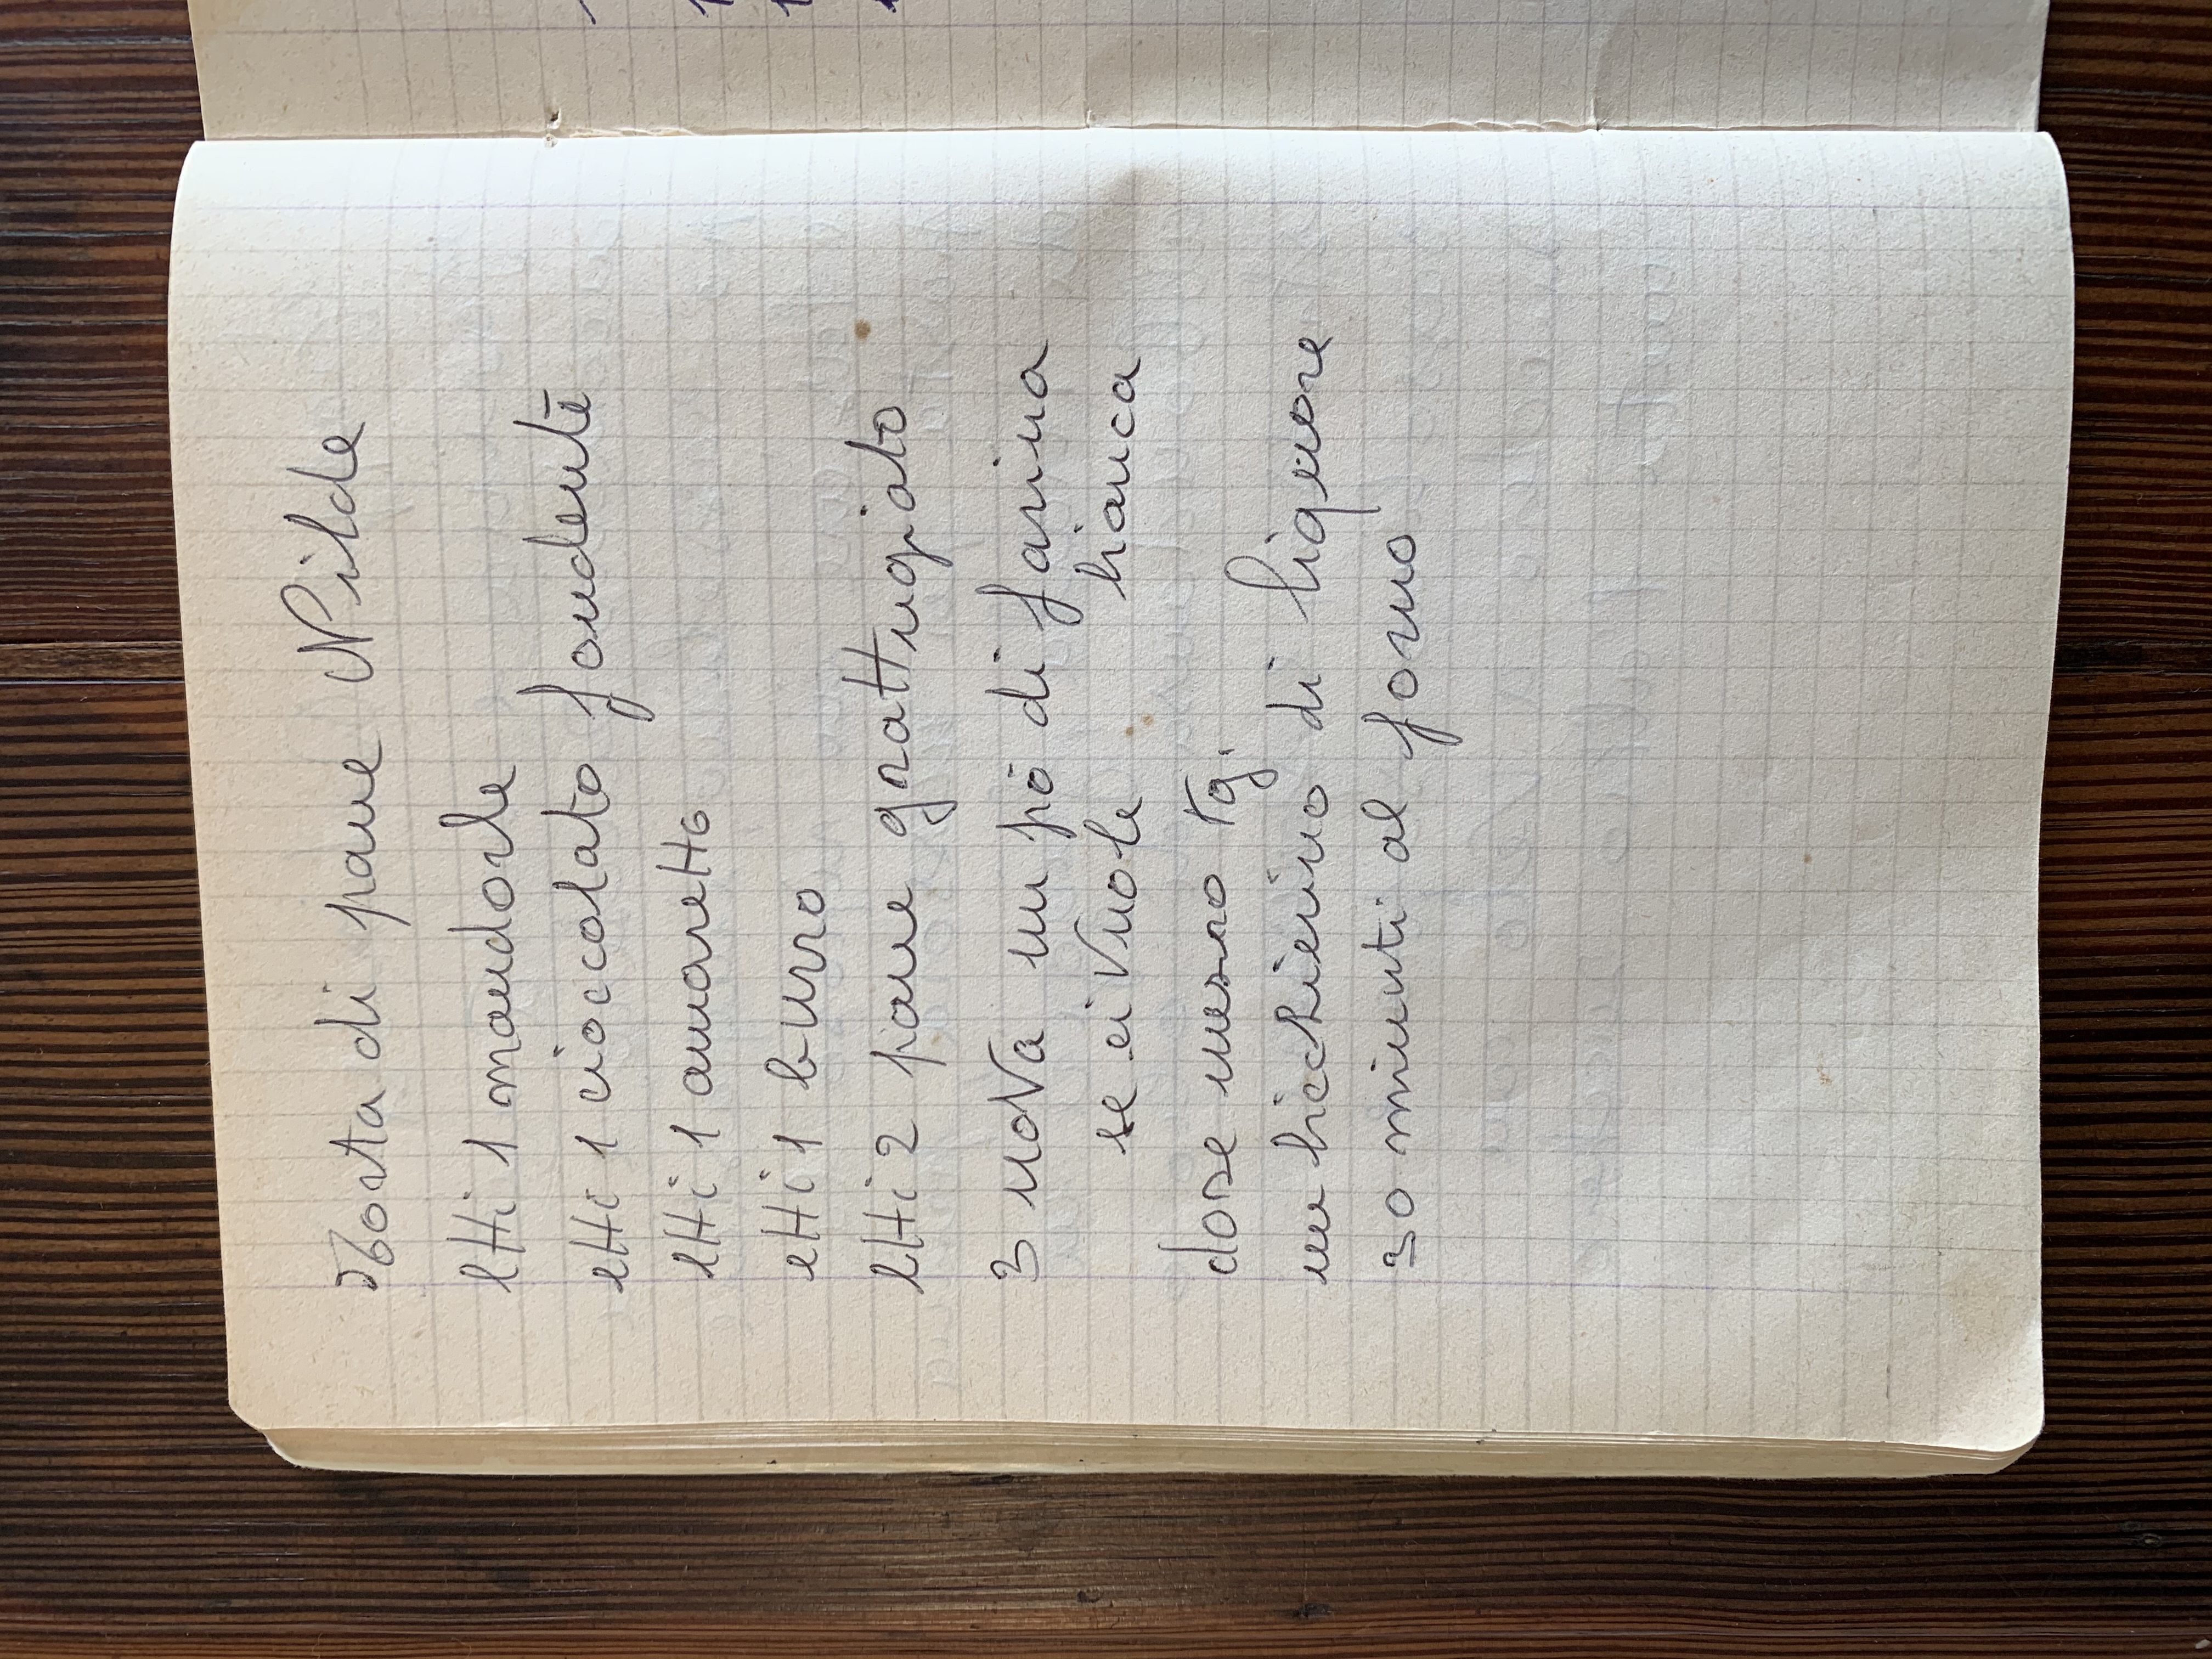 Torta di pane Nilde
etti 1 mandorle
etti 1 cioccolato fondente
etti 1 amaretto
etti 1 burro
etti 2 pane grattugiato
3 uova un pò di farina
se ci vuole bianca
dose mezzo Kg.
un bicchierino di liquore
30 minuti al forno